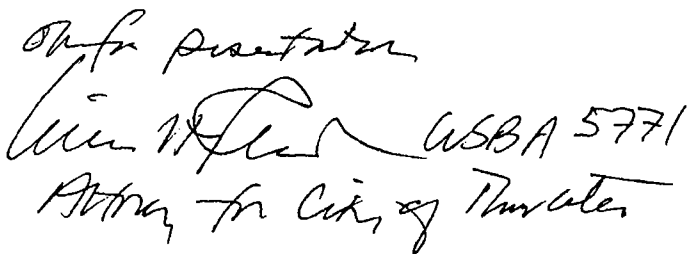 Ok for presentation
WSBA 5771
Attorney for City of Tumwater